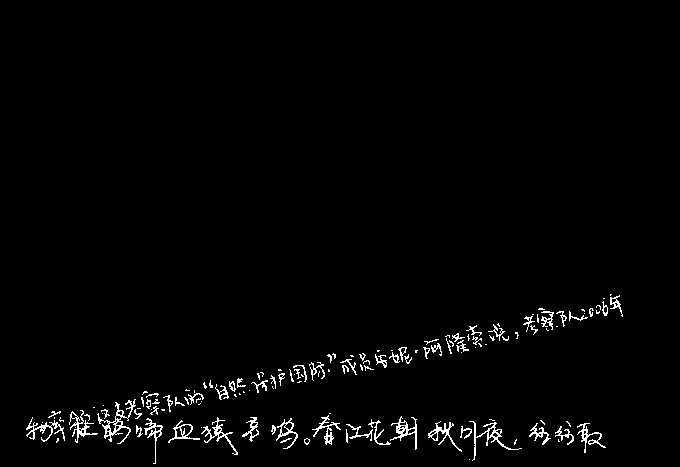 率领这支考察队的“自然保护国际”成员安妮·阿隆索说，考察队2006年
物？杜鹃啼血猿哀鸣。春江花朝秋月夜，往往取